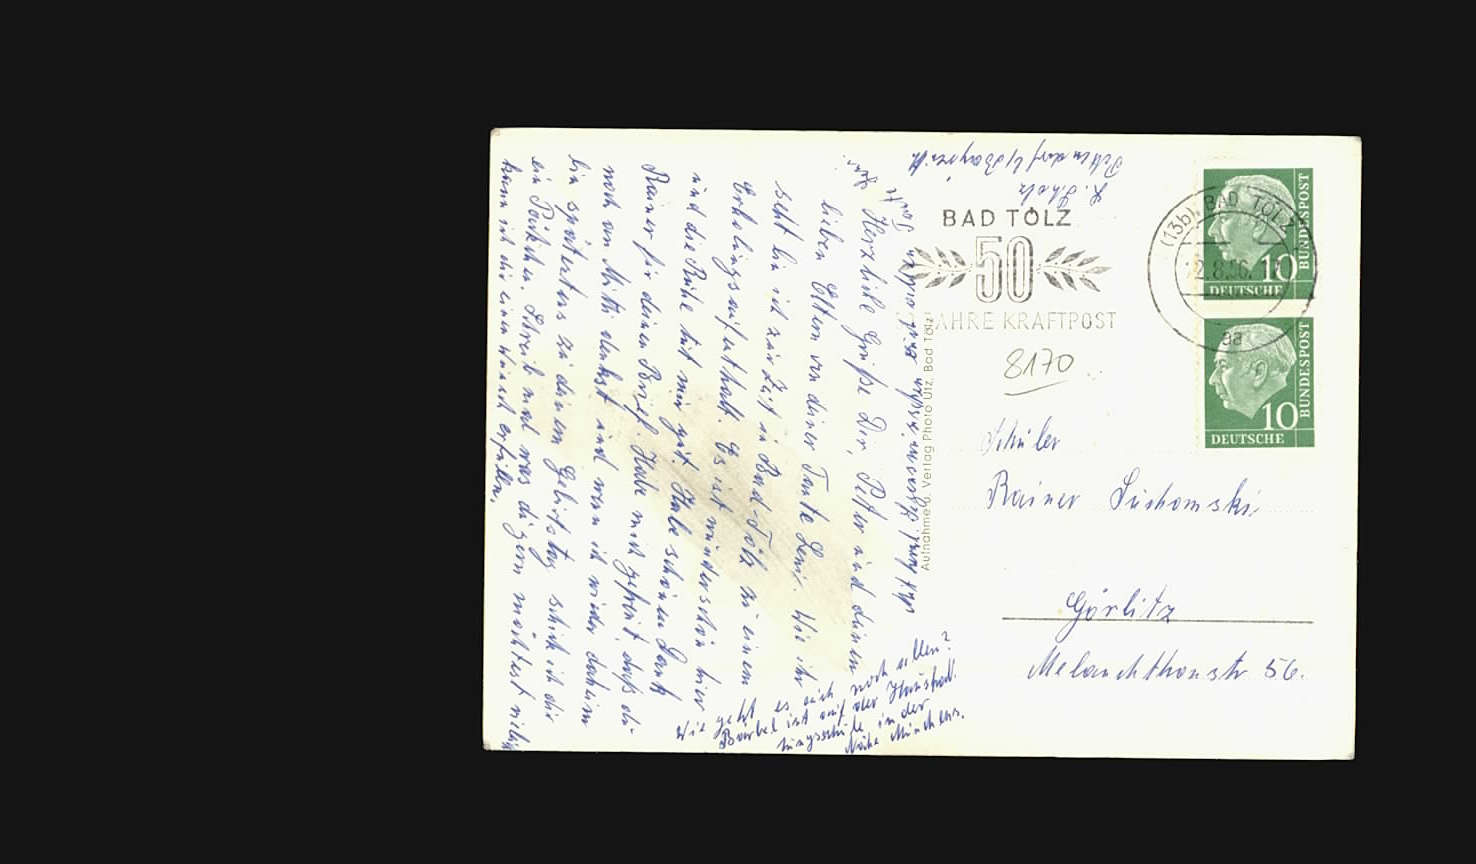 L. Scholz
BAD TÖLZ
50
JAHRE KRAFTPOST
8170
(13b) BAD TÖLZ
2.8.56.
aa
10
DEUTSCHE
BUNDESPOST
10
DEUTSCHE
BUNDESPOST
Schüler
Rainer Suchomski
Görlitz
Melanchthonstr 56.
Aufnahme u. Verlag Photo Utz, Bad Tölz
Herzliche Grüße Dir, Peter und deinen
lieben Eltern von deiner Tante Leni. Wie ihr
seht bin ich zur Zeit in Bad-Tölz zu einem
Erholungsaufenthalt. Es ist wunderschön hier
und die Ruhe tut mir gut. Habe schönen Dank
Rainer für deinen Brief. Habe mich gefreut, daß du
noch an Mitti denkst und wenn ich wieder daheim
bin spätestens zu deinem Geburtstag schick ich dir
ein Päckchen. Schreib mal was du gern möchtest vielleicht
kann ich dir einen Wunsch erfüllen.
Wie geht es euch noch allen?
Bärbel ist auf der Haushal
tungsschule in der
Nähe Münchens.